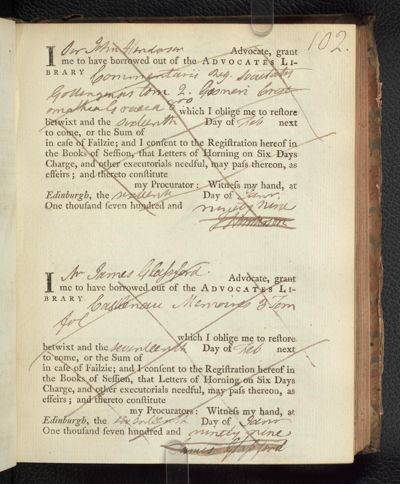 102.
I Mr John Henderson Advocate, grant
me to have borrowed out of the ADVOCATES LI-
BRARY Commentarii Reg. Societatis
Gottengensis tom 2. Gesneri
8vo which I oblige me to reſtore
betwixt and the sixteenth Day of Feb next
to come, or the Sum of
in caſe of Failzie; and I conſent to the Regiſtration hereof in
the Books of Seſſion, that Letters of Horning on Six Days
Charge, and other executorials needful, may paſs thereon, as
effeirs; and thereto conſtitute
my Procurator: Witneſs my hand, at
Edinburgh, the sixteenth Day of Janr
One thouſand ſeven hundred and ninety nine
J Henderson
I Mr James Glassford Advocate, grant
me to have borrowed out of the ADVOCATES LI-
BRARY Castlenau Memoires 3 Tom
fol
which I oblige me to reſtore
betwixt and the seventeenth Day of Feb next
to come, or the Sum of
in caſe of Failzie; and I conſent to the Regiſtration hereof in
the Books of Seſſion, that Letters of Horning on Six Days
Charge, and other executorials needful, may paſs thereon, as
effeirs; and thereto conſtitute
my Procurators: Witneſs my hand, at
Edinburgh, the seventeenth Day of Janr
One thouſand ſeven hundred and ninety nine
James Glassford